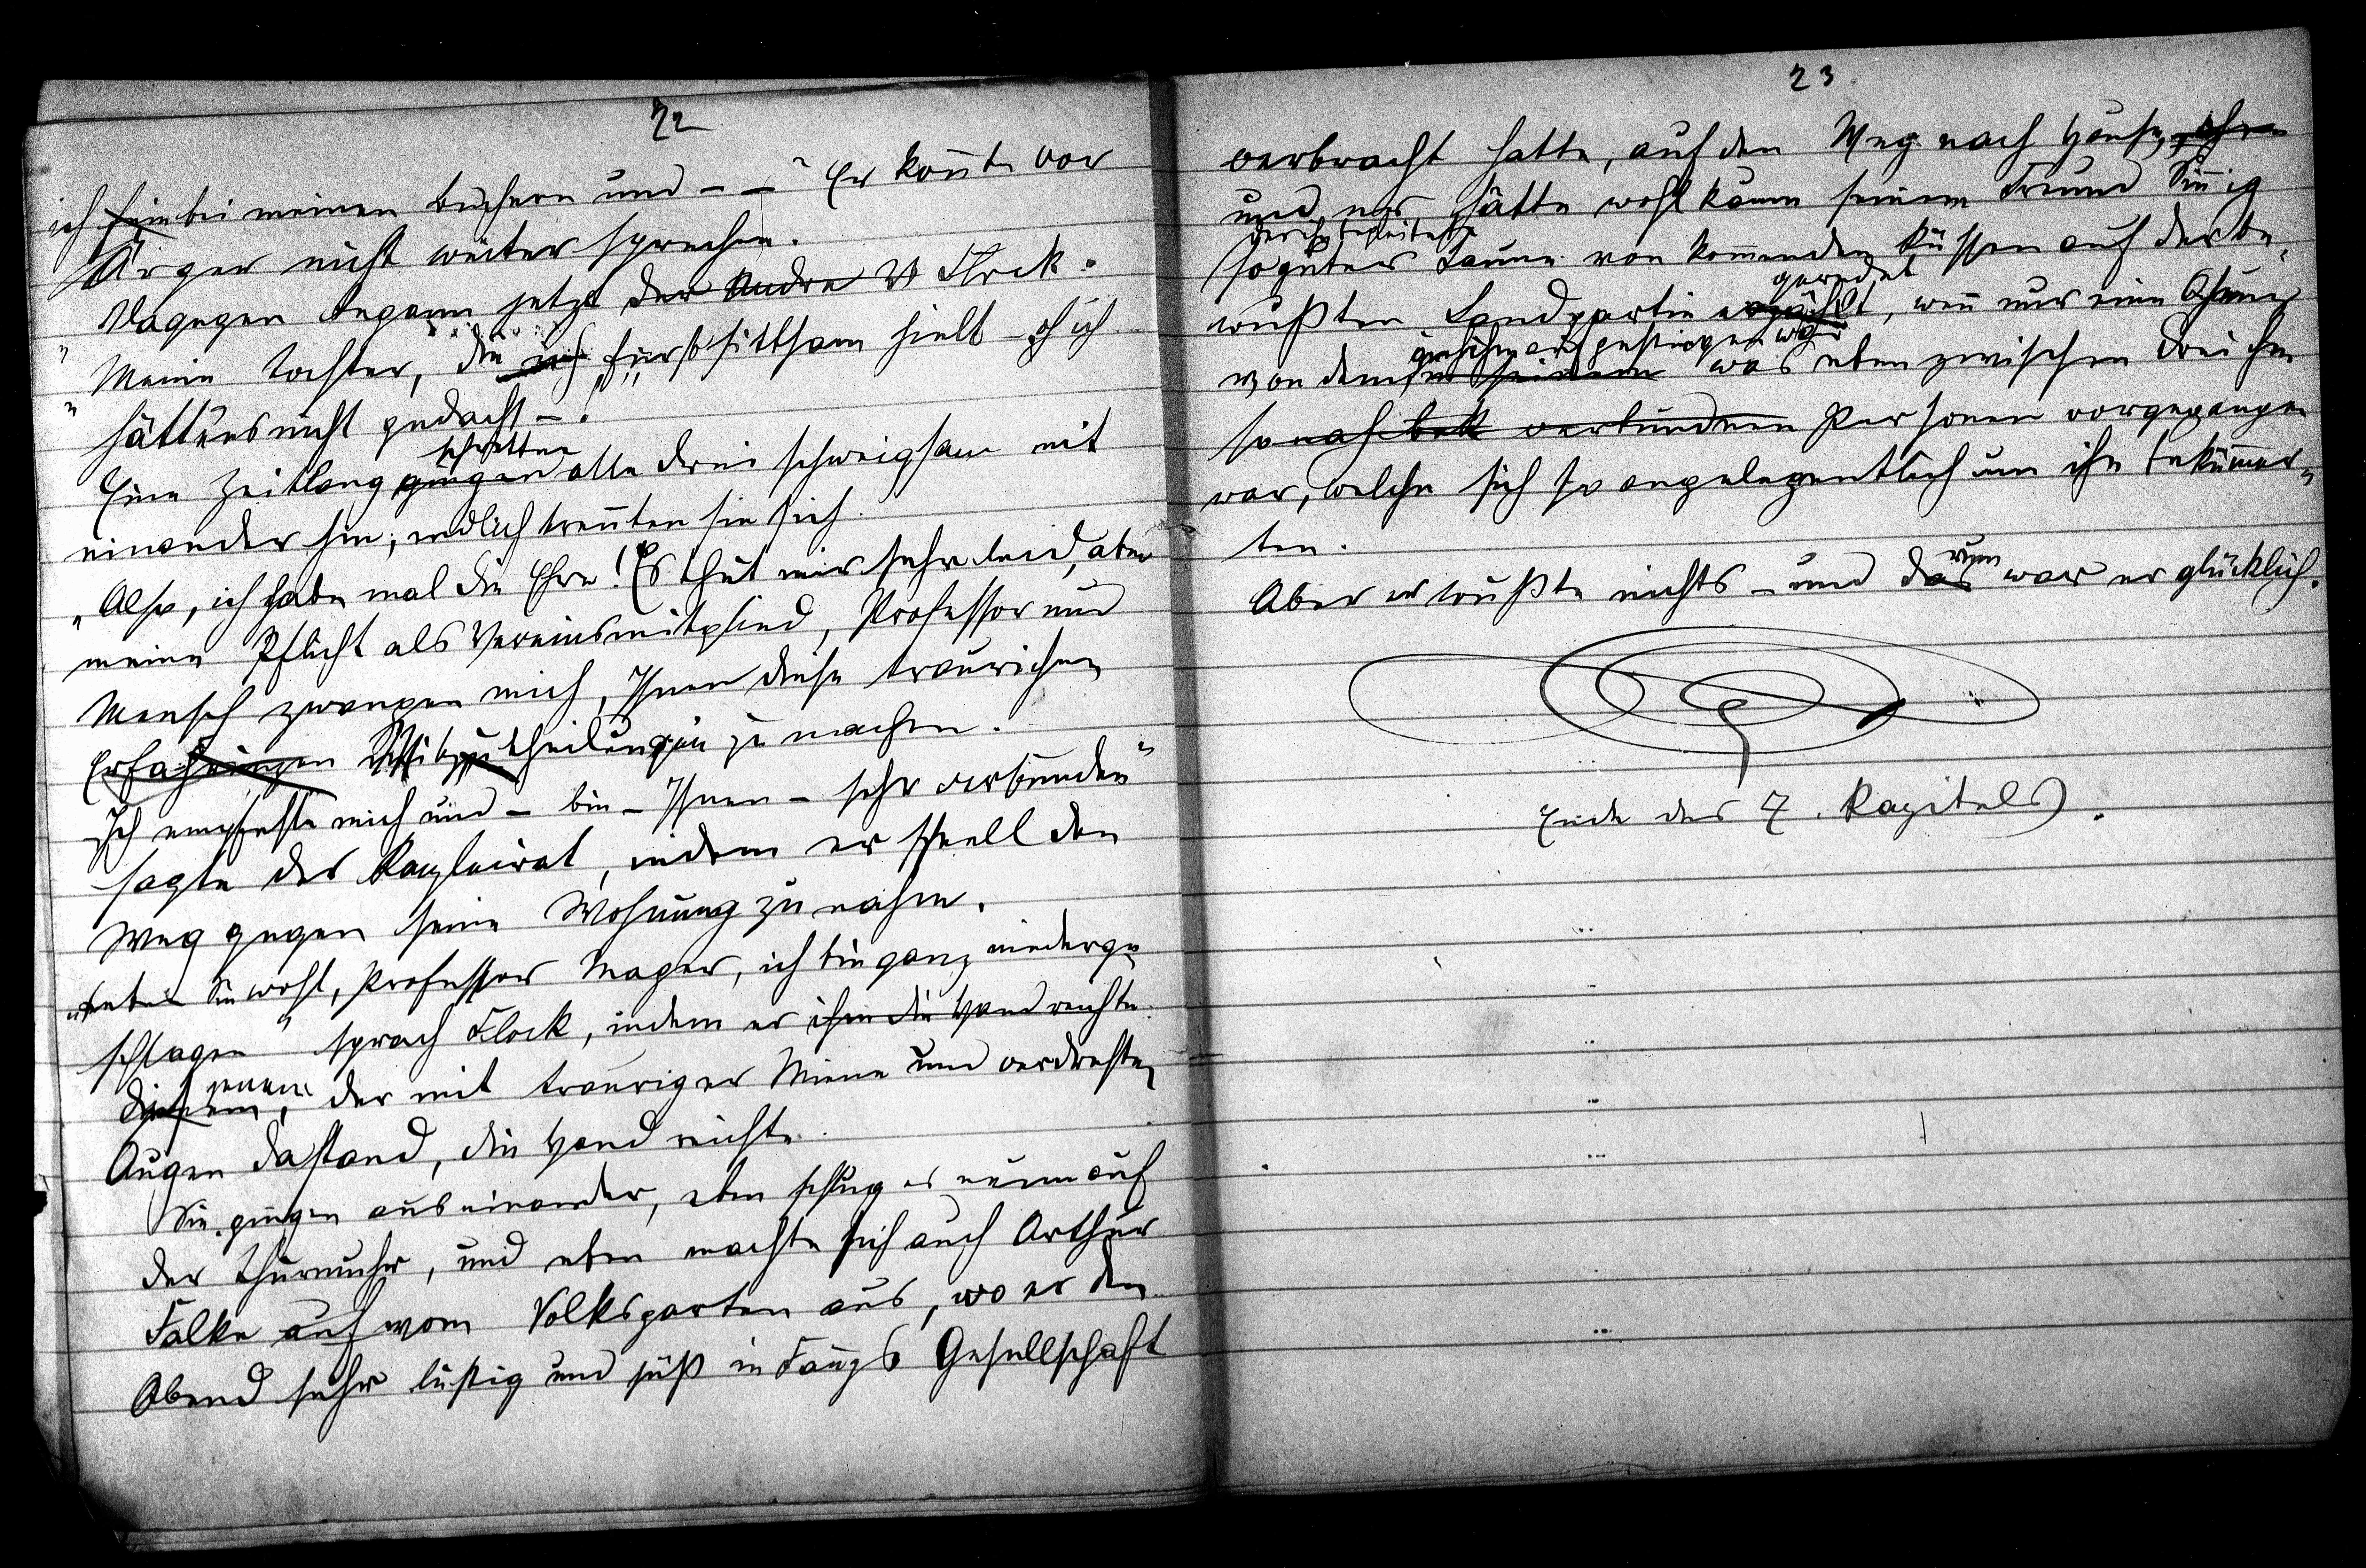 22
ich fein bei meinen Büchern und - - " Er konnte vor
Ärger nicht weiter sprechen.
Dagegen begann jetzt der Andre Flock:
"Meine Tochter, die ich für so sittsam hielt - oh ich
"hätt' es nicht gedacht -."
schritten
Eine Zeitlang gingen alle drei schweigsam mit
einander hin; endlich trennten sie sich.
„Also, ich habe mal die Ehre! Es thut mir sehr leid, aber
meine Pflicht als Vereinsmitglied, Professor und
Mensch zwangen mich, Ihnen diese traurichen
Erfahrungen Mittheilungen zu machen.
Ich empfehle mich und - bin - Ihnen - sehr verbunden"
sagte der Kanzleirat, indem er schnell den
Weg gegen seine Wohnung zu nahm.
„Leben Sie wohl, Professor Mager, ich bin ganz niederge
schlagen" sprach Flock, indem er ihm die Hand reichte
jenem
diesem, der mit trauriger Miene und verdrehten
Augen dastand, die Hand reichte.
Sie gingen auseinander, eben schlug es neun auf
der Thurmuhr, und eben machte sich auch Arthur
Falke auf vom Volksgarten aus, wo er den
Abend sehr lustig und süß in Fannys Gesellschaft
23
verbracht hatte, auf den Weg nach Hause,
und er hätte wohl kaum seinem Freund Sinnig
der ihn begleitete
so guter Laune von kommenden Küssen auf der be-
geredet
wußten Landpartie erzählt, wenn nur eine Ahnung
in ihm aufgestiegen wär
von dem was eben zwischen drei ihm
so nah verbundnen Personen vorgegangen
war, welche sich so angelegentlich um ihn bekümmer-
ten.
rum
Aber er wußte nichts - und das war er glücklich.
Ende des 7. Kapitels.